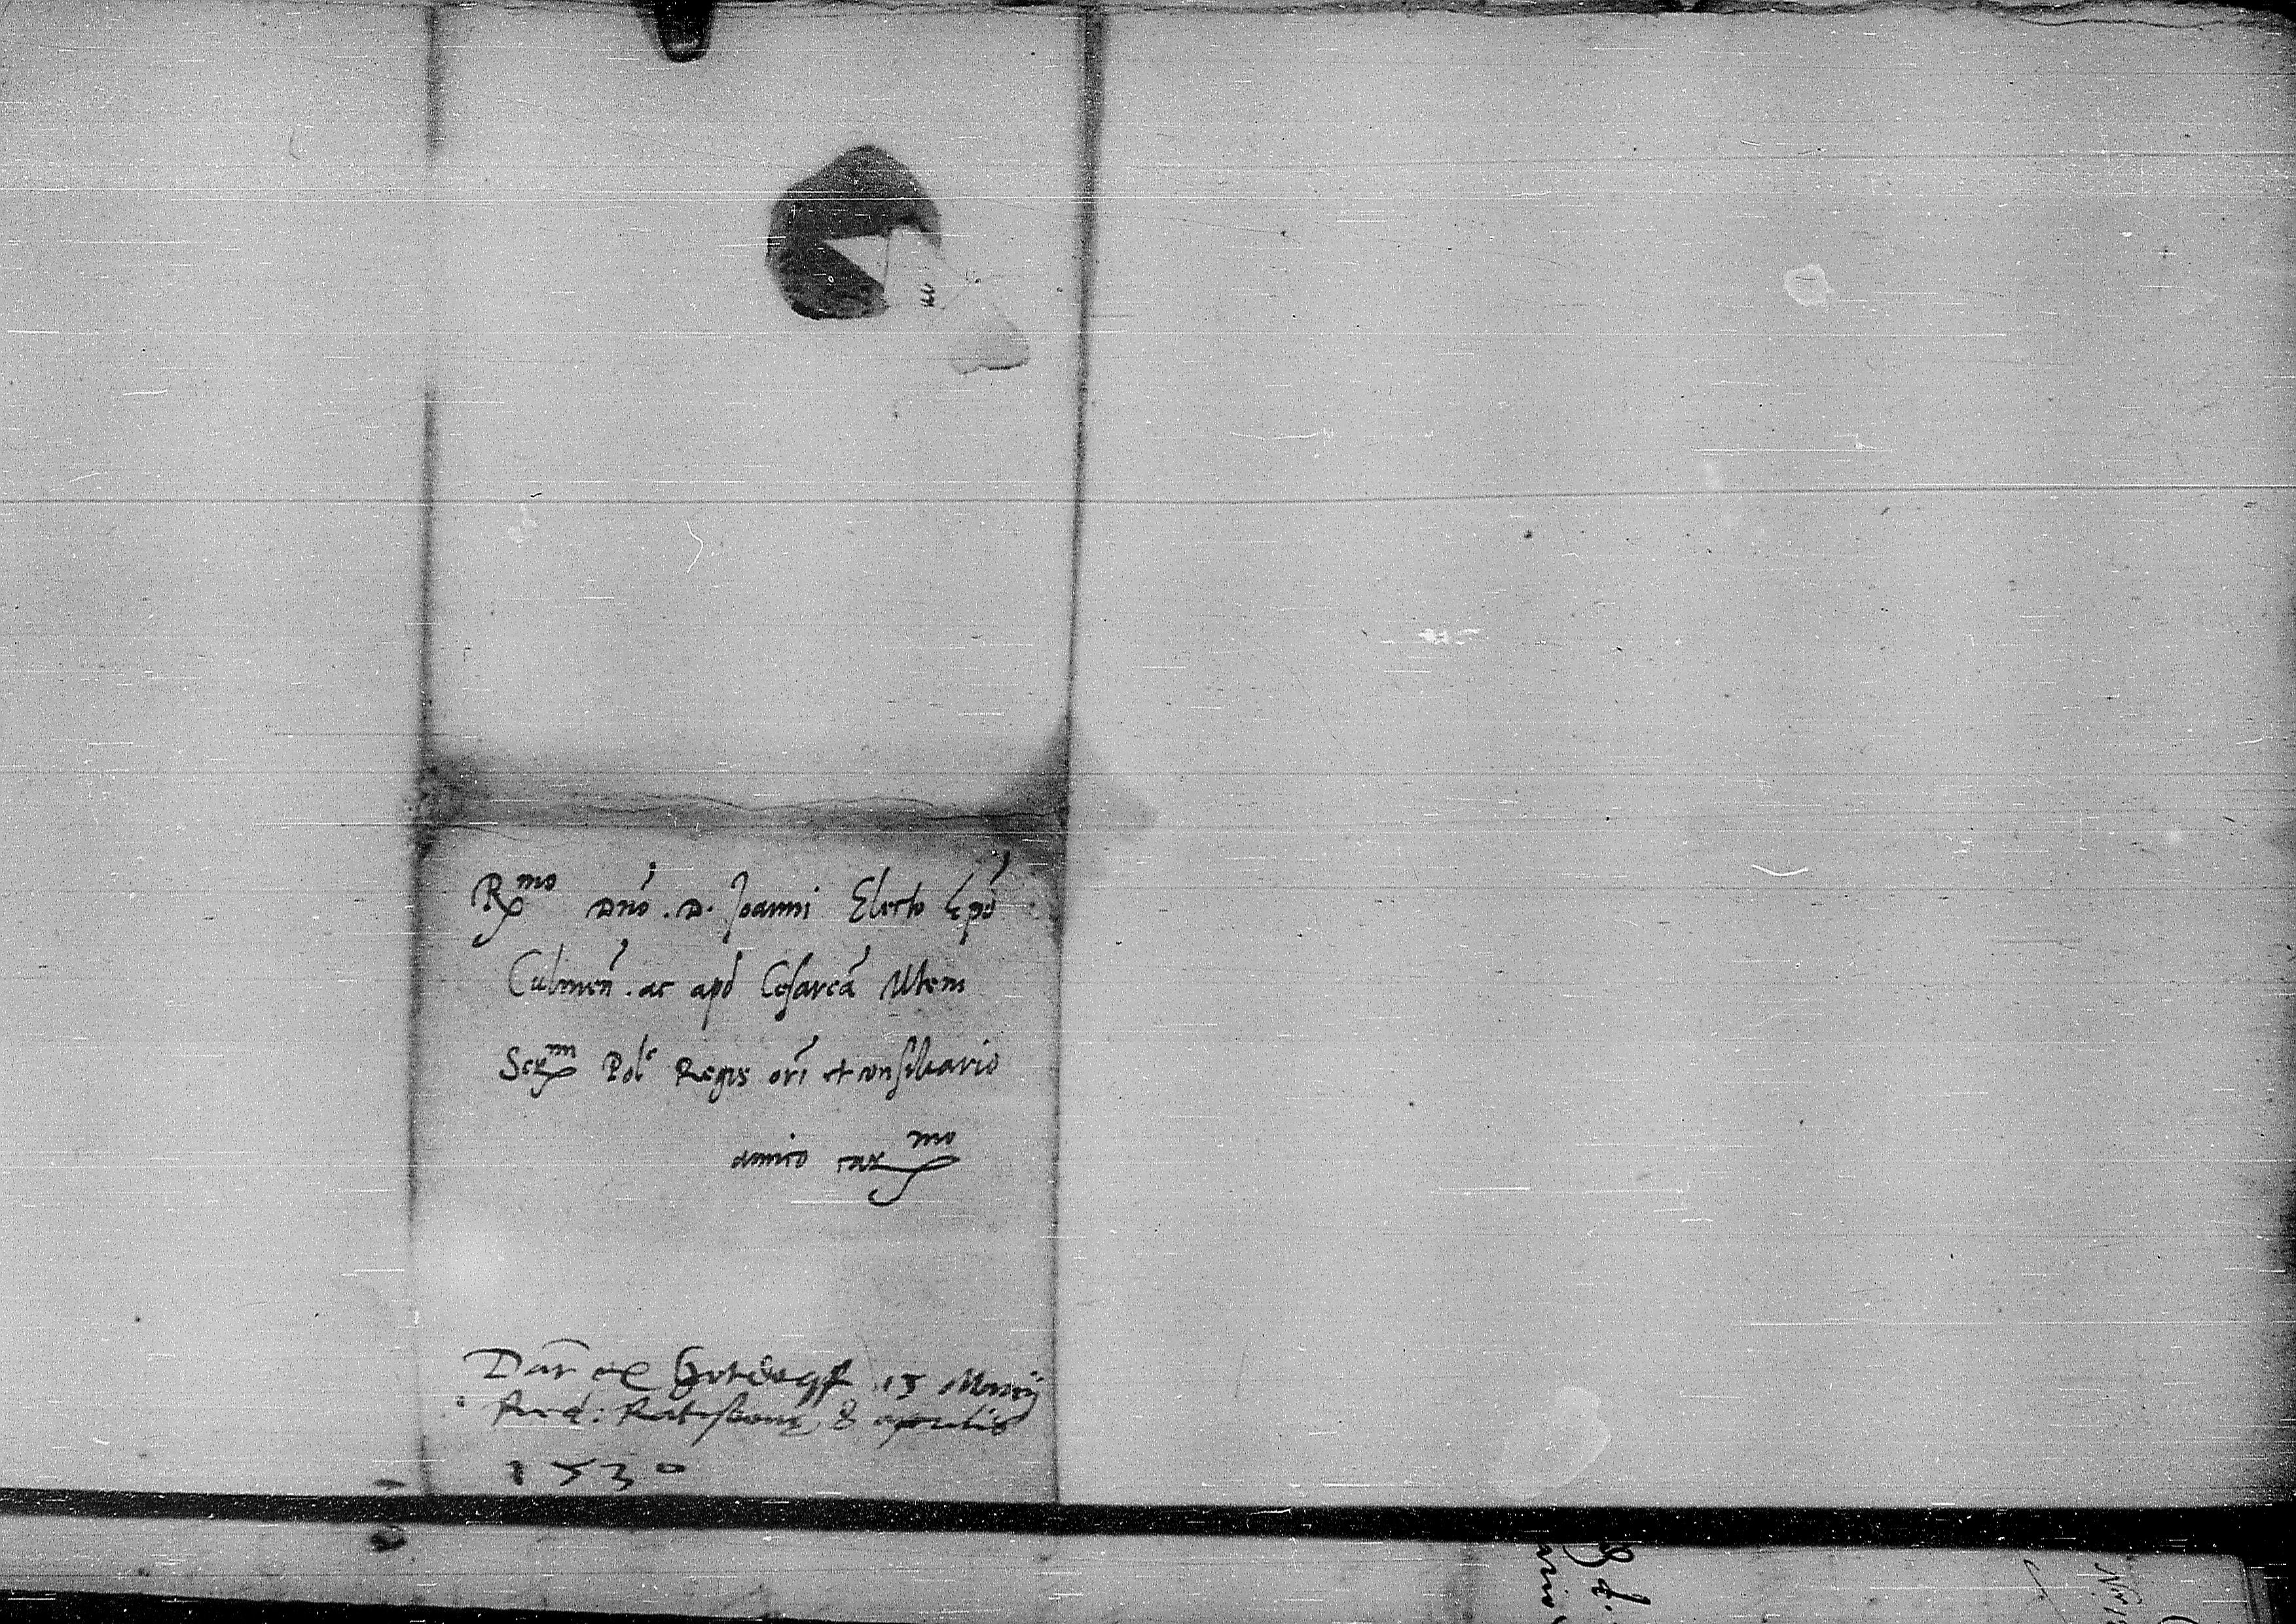 Rmo Dno. D. Joanni Electo Epo
Culmen. ac apd Cesarea Mtem
Sermi Pole Regis ori et consiliario
amico carmo
Dat ex 13 Martij
Red: Ratisbone 8 aprilis
1530